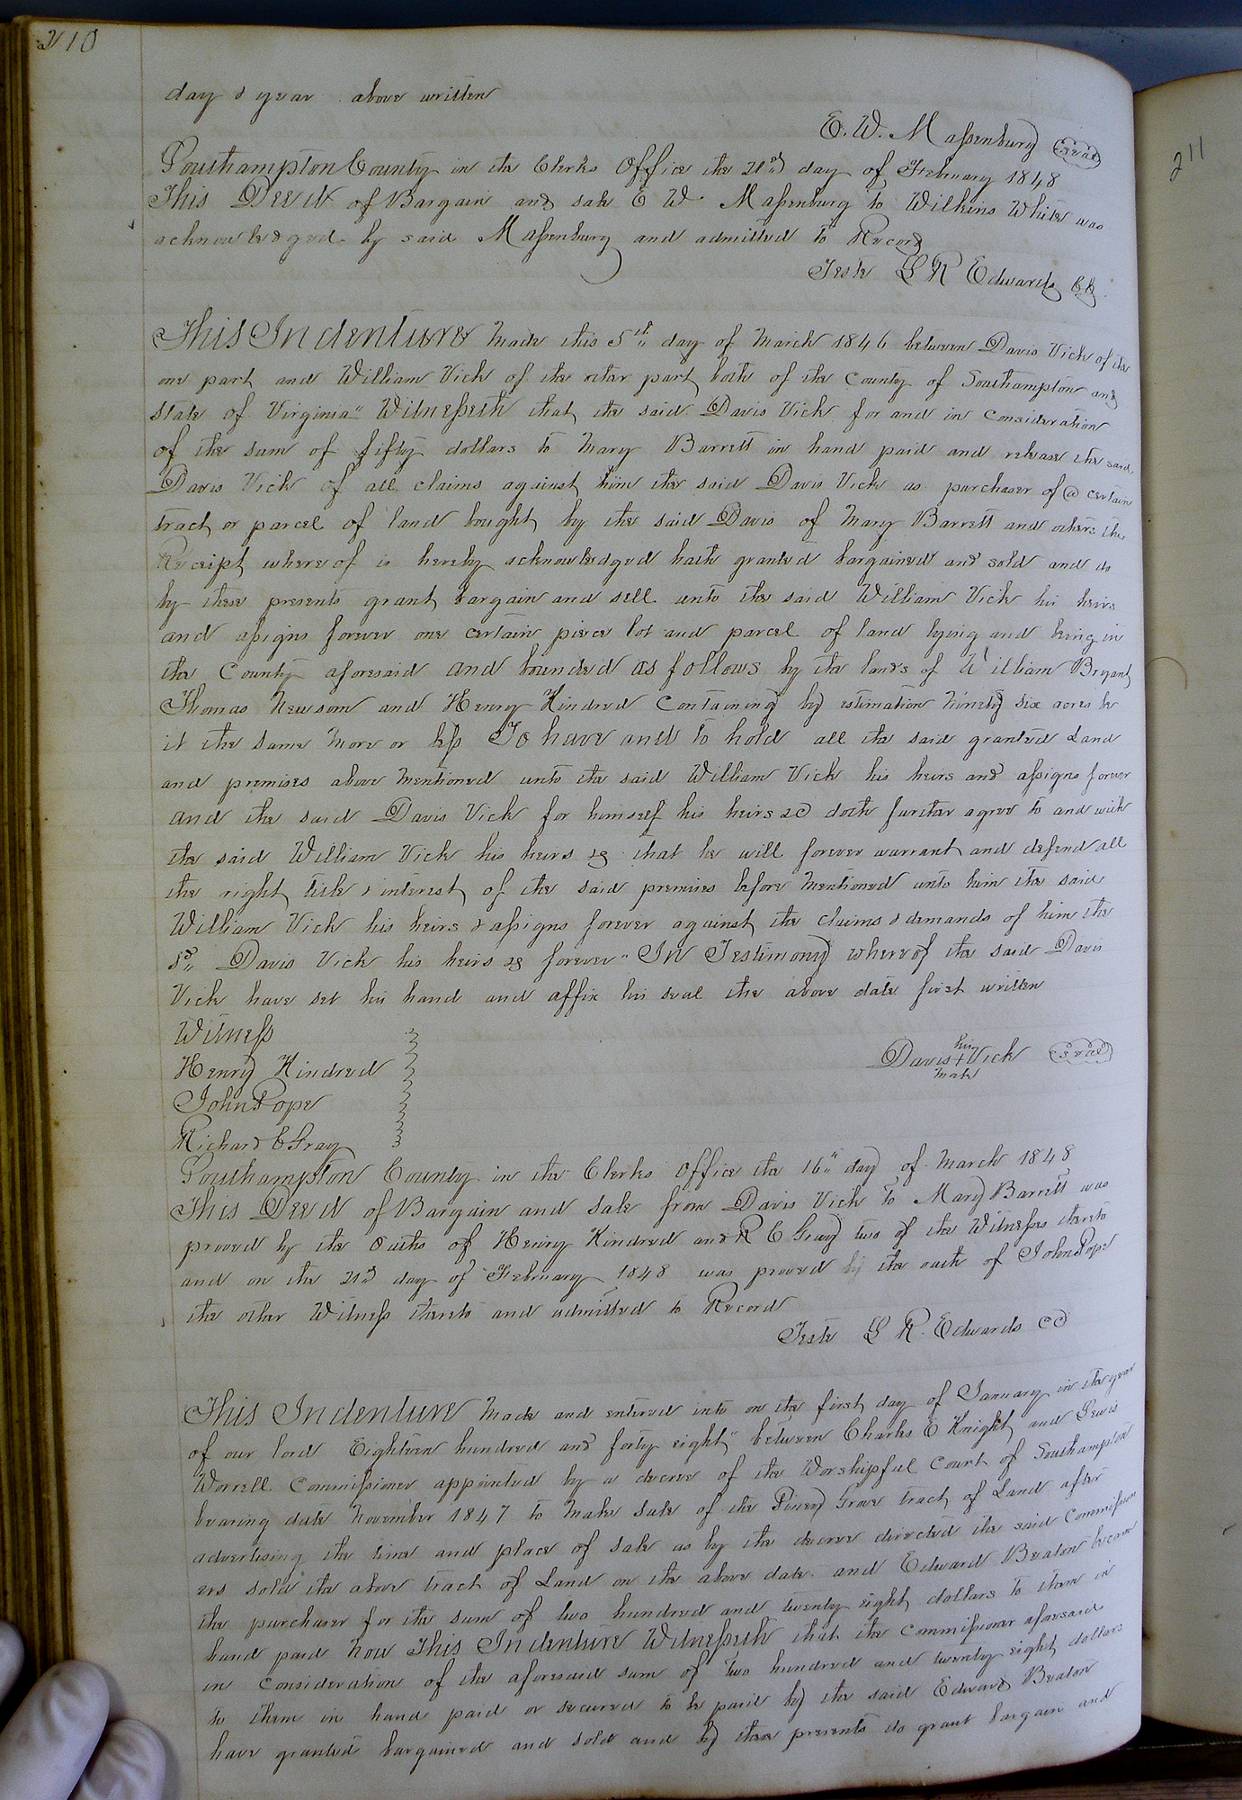 210
day & year above written
E. W. Massenburg Seal
Southampton County in the Clerks Office the 21st day of February 1848
This Deed of Bargain and sale E W Massenburg to Wilkins White was
acknowledged by said Massenburg and admitted to Record
Teste L R Edwards CC
This Indenture Made this 5th day of March 1846 between Davis Vick of the
one part and William Vick of the other part both of the County of Southampton and
State of Virginia" Witnesseth that the said Davis Vick for and in Consideration
of the sum of fifty dollars to Mary Barrett in hand paid and release the said
Davis Vick of all claims against him the said Davis Vick as purchaser of a certain
tract or parcel of land bought by the said Davis of Mary Barrett and others the
Receipt whereof is hereby acknowledged hath granted bargained and sold and do
by these presents grant bargain and sell unto the said William Vick his heirs
and assigns forever one certain piece lot and parcel of land lying and being in
the County aforesaid and bounded as follows by the lands of William Bryant
Thomas Newsom and Henry Kindred Containing by estimation Ninety six acres be
it the same more or less To have and to hold all the said granted Land
and premises above mentioned unto the said William Vick his heirs and assigns forever
and the said Davis Vick for himself his heirs &c doth further agree to and with
the said William Vick his heirs &c that he will forever warrant and defend all
the right title & interest of the said premises before mentioned unto him the said
William Vick his heirs & assigns forever against the claims & demands of him the
sd Davis Vick his heirs &c forever" In Testimony whereof the said Davis
Vick have set his hand and affix his seal the above date first written
Witness
Henry Kindred
John Pope
Richard E Gray
his
Davis + Vick Seal
mark
Southampton County in the Clerks Office the 16th day of March 1848
This Deed of Bargain and sale from Davis Vick to Mary Barrett was
proved by the Oaths of Henry Kindred and R E Gray two of the Witnesses thereto
and on the 21st day of February 1848 was proved by the oath of John Pope
the other Witness thereto and admitted to Record
Teste L R. Edwards CC
This Indenture Made and entered into on the first day of January in the year
of our lord Eighteen hundred and forty eight" between Charles E Knight and Lewis
Worrell Commissioner appointed by a decree of the Worshipful Court of Southampton
bearing date November 1847 to Make sale of the Piney Grove tract of Land after
advertising the time and place of sale as by the decree directed the said Commission
ers sold the above tract of Land on the above date and Edward Beaton became
the purchaser for the sum of two hundred and twenty eight dollars to them in
hand paid Now This Indenture Witnesseth that the Commissioner aforesaid
in Consideration of the aforesaid sum of two hundred and twenty eight dollars
to them in hand paid or secured to be paid by the said Edward Beaton
have granted bargained and sold and by these presents do grant bargain and
211